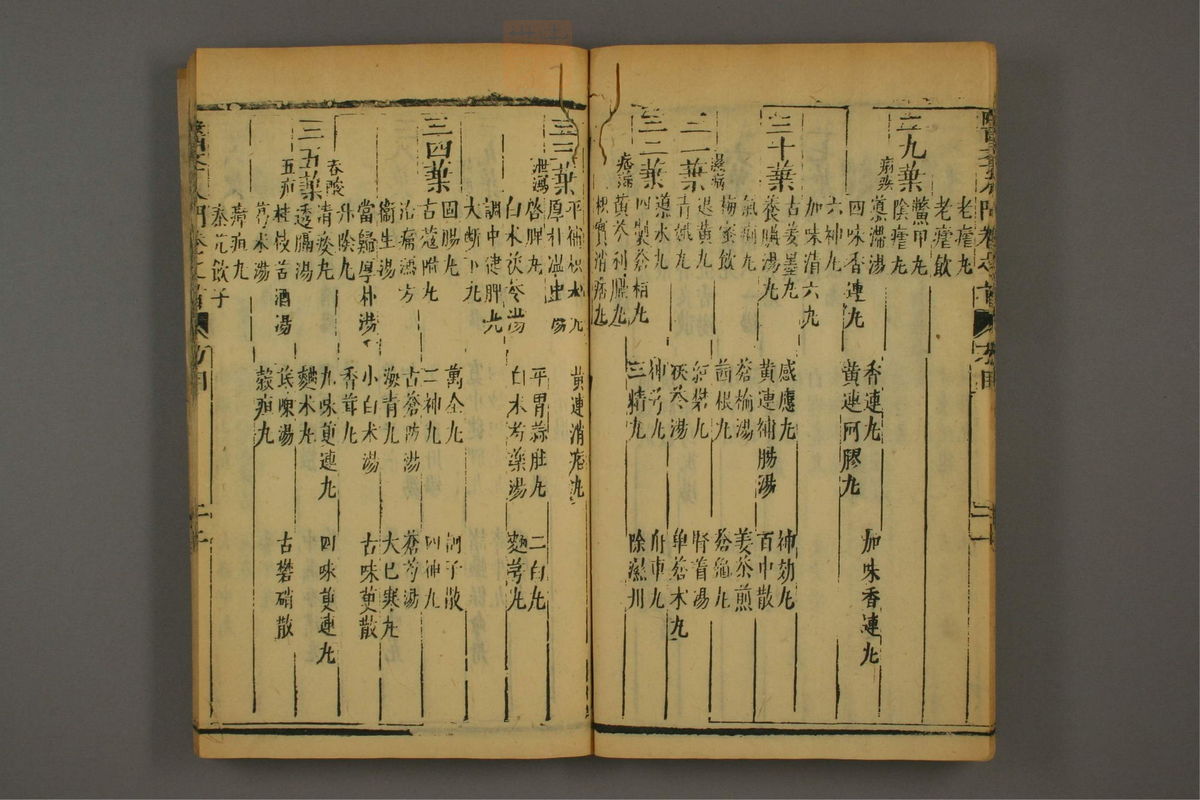 老瘧丸
老瘧飲
鱉甲丸
陰瘧丸
三九葉
痢疾
導滯湯
四味香連丸 香連丸 加味香連丸
六神丸 黃連阿膠丸
加味清六丸
三十葉
古姜墨丸 感應丸 神効丸
養臟湯 黃連補腸湯 百中散
氣痢丸 蒼榆湯 姜茶煎
梅蜜飲 茵根丸 蒼龜丸
三一葉
濕病
退黃丸 紅礬丸 腎着湯
青龍丸 茯苓湯 單蒼术丸
導水丸 神芎丸 舟車丸
三二葉
四製蒼柏丸 三精丸 除濕丹
痞滿
黃芩利膈丸
枳實消痞丸
平補枳术丸 黃連消痞丸
三三葉
厚朴溫中湯
泄瀉
啓脾丸 平胃蒜肚丸 二白丸
白术茯苓湯 白术芍藥湯 麴芎丸
調中健脾丸
大斷下丸
固腸丸 萬全丸 訶子散
三四葉
古蔻附丸 二神丸 四神丸
治痛瀉方 古蒼防湯 蒼芎湯
衛生湯 海青丸 大已寒丸
當歸厚朴湯 小白术湯 古味萸散
升陰丸 香茸丸
吞酸
清痰丸 九味萸連丸 四味萸連丸
三五葉
透膈湯 麴术丸
五疸
桂枝苦酒湯 茵蔯湯 古礬硝散
蒿术湯 穀疸丸
瘴疸丸
秦艽飲子